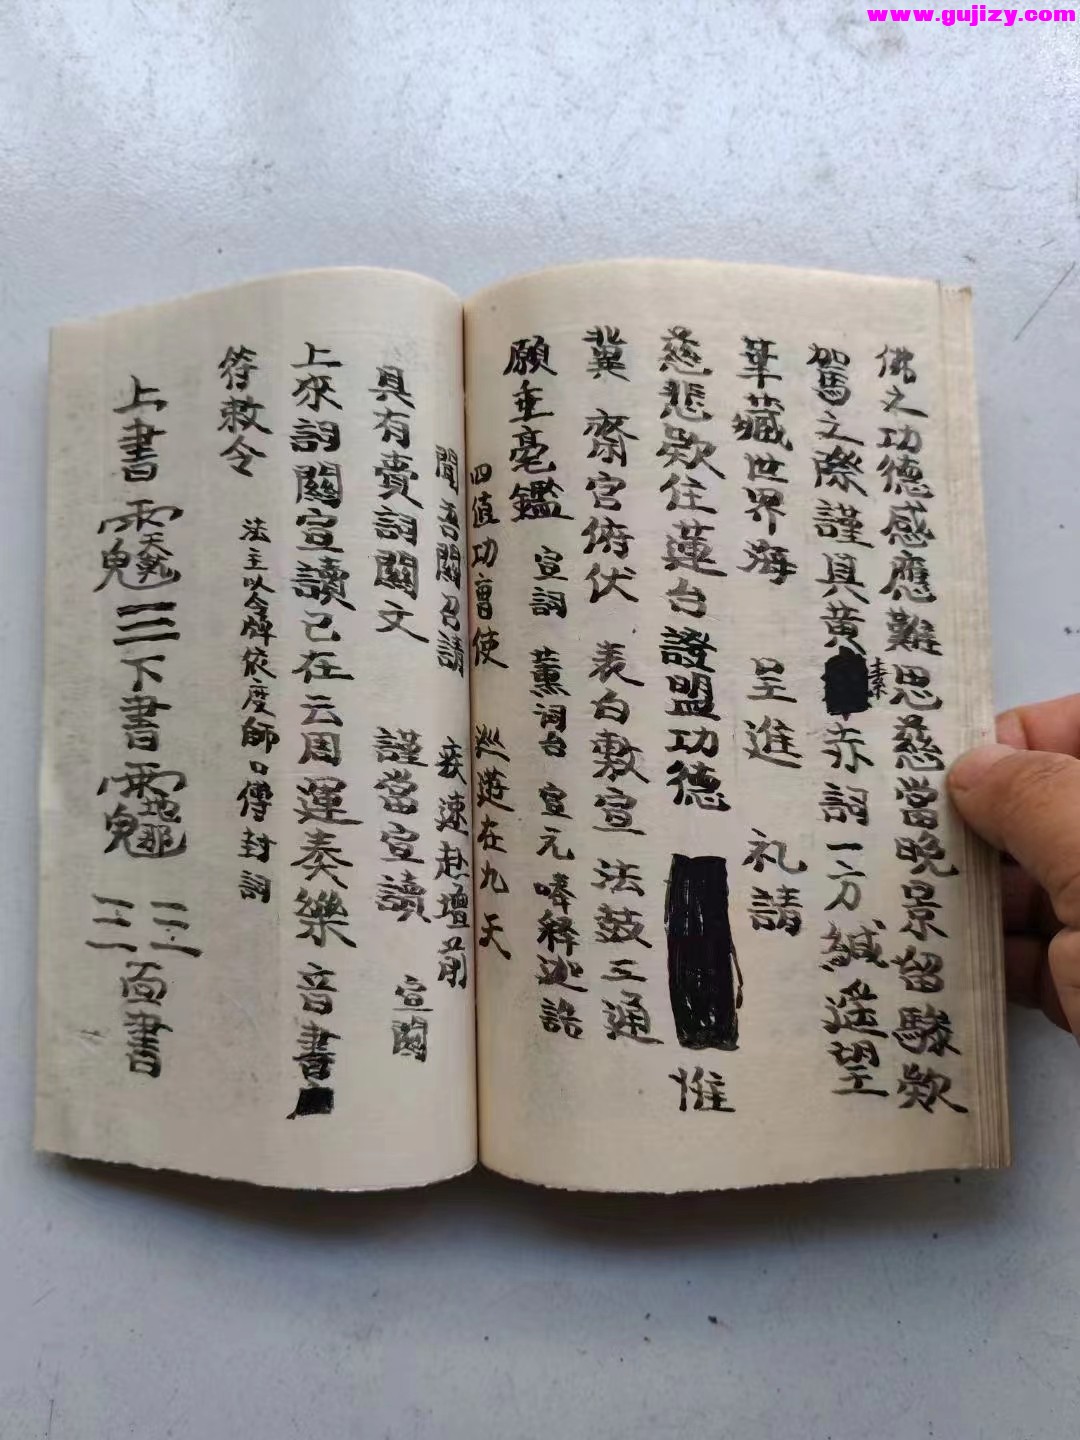 www.gujizy.com
佛之功德感應難思慈當晚景留駿欵
駕之際謹具黃素赤詞一方緘遥望
華藏世界海 呈進 礼請
慈悲欵住蓮台證盟功德 惟
冀 齋官俯伏 表白敷宣 法鼓三通
願垂毫鑑 宣詞 薰詞台 宣元 㖿释迦誥
四值功曹使 巡遊在九天
聞吾關召請 疾速赴壇前
具有賫詞關文 謹當宣讀 宣関
上來詞關宣讀已在云周運奏樂 音書
符敕令 法主以令牌依度師口傳封詞
上書 三下書 三三 三三 面書